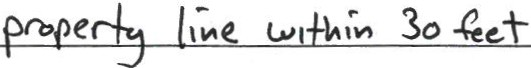 property line within 30 feet